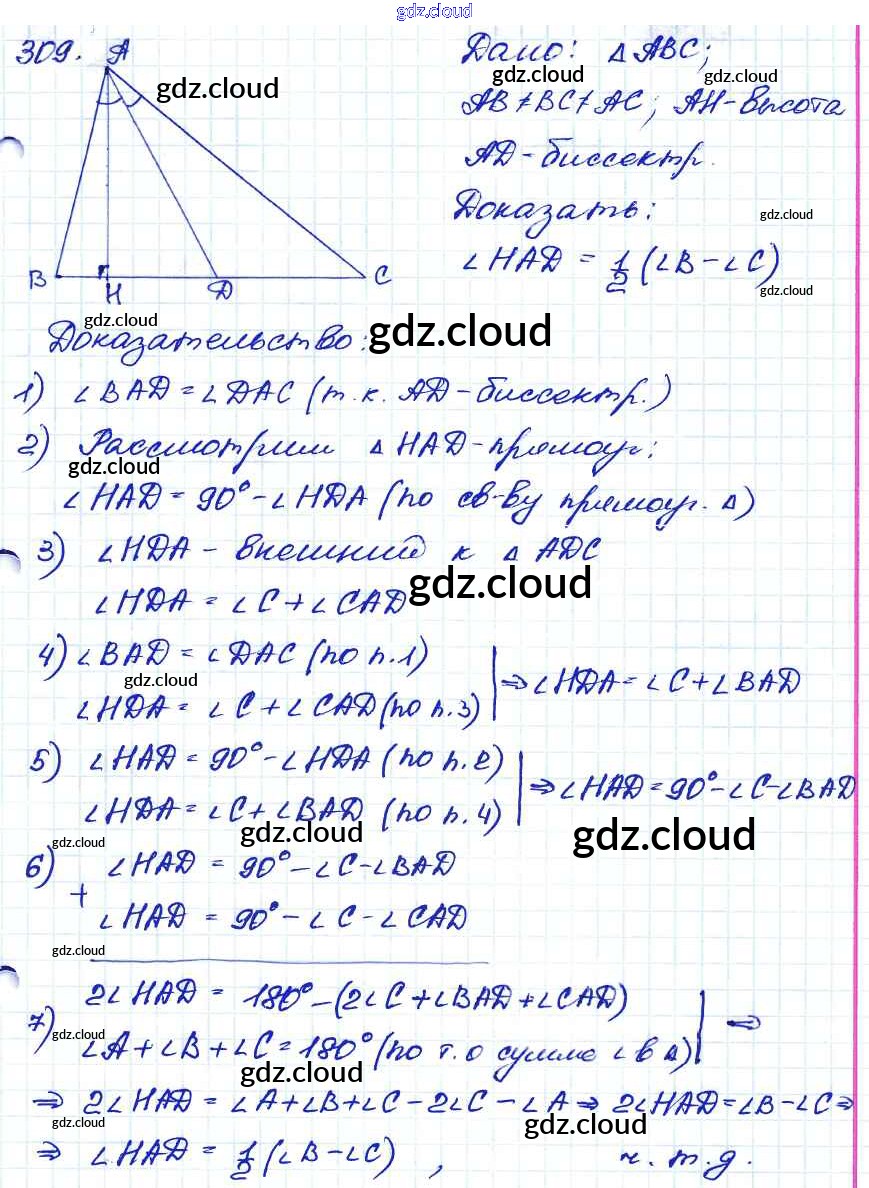 gdz.cloud
309. A
Дано: △ABC;
gdz.cloud
gdz.cloud gdz.cloud
AB≠BC≠AC; AH-высота
AD-биссектр.
Доказать:
gdz.cloud
∠HAD = 1/2 (∠B-∠C)
gdz.cloud
B H D C
gdz.cloud
Доказательство:
gdz.cloud
1) ∠BAD = ∠DAC (т.к. AD-биссектр.)
2) Рассмотрим △HAD-прямоуг:
gdz.cloud
∠HAD = 90°-∠HDA (по св-ву прямоуг. △)
3) ∠HDA - внешний к △ADC
gdz.cloud
∠HDA = ∠C+∠CAD
4) ∠BAD = ∠DAC (по п.1)
gdz.cloud
∠HDA = ∠C+∠CAD (по п.3) | ⇒ ∠HDA = ∠C+∠BAD
5) ∠HAD = 90°-∠HDA (по п.2)
∠HDA = ∠C+∠BAD (по п.4) | ⇒ ∠HAD = 90°-∠C-∠BAD
gdz.cloud gdz.cloud gdz.cloud
6) ∠HAD = 90°-∠C-∠BAD
+
∠HAD = 90°-∠C-∠CAD
gdz.cloud
2∠HAD = 180°-(2∠C+∠BAD+∠CAD)
gdz.cloud
7) ∠A+∠B+∠C=180° (по т.о сумме ∠ в △) | ⇒
gdz.cloud
⇒ 2∠HAD = ∠A+∠B+∠C-2∠C-∠A ⇒ 2∠HAD = ∠B-∠C ⇒
gdz.cloud
⇒ ∠HAD = 1/2 (∠B-∠C), ч.т.д.